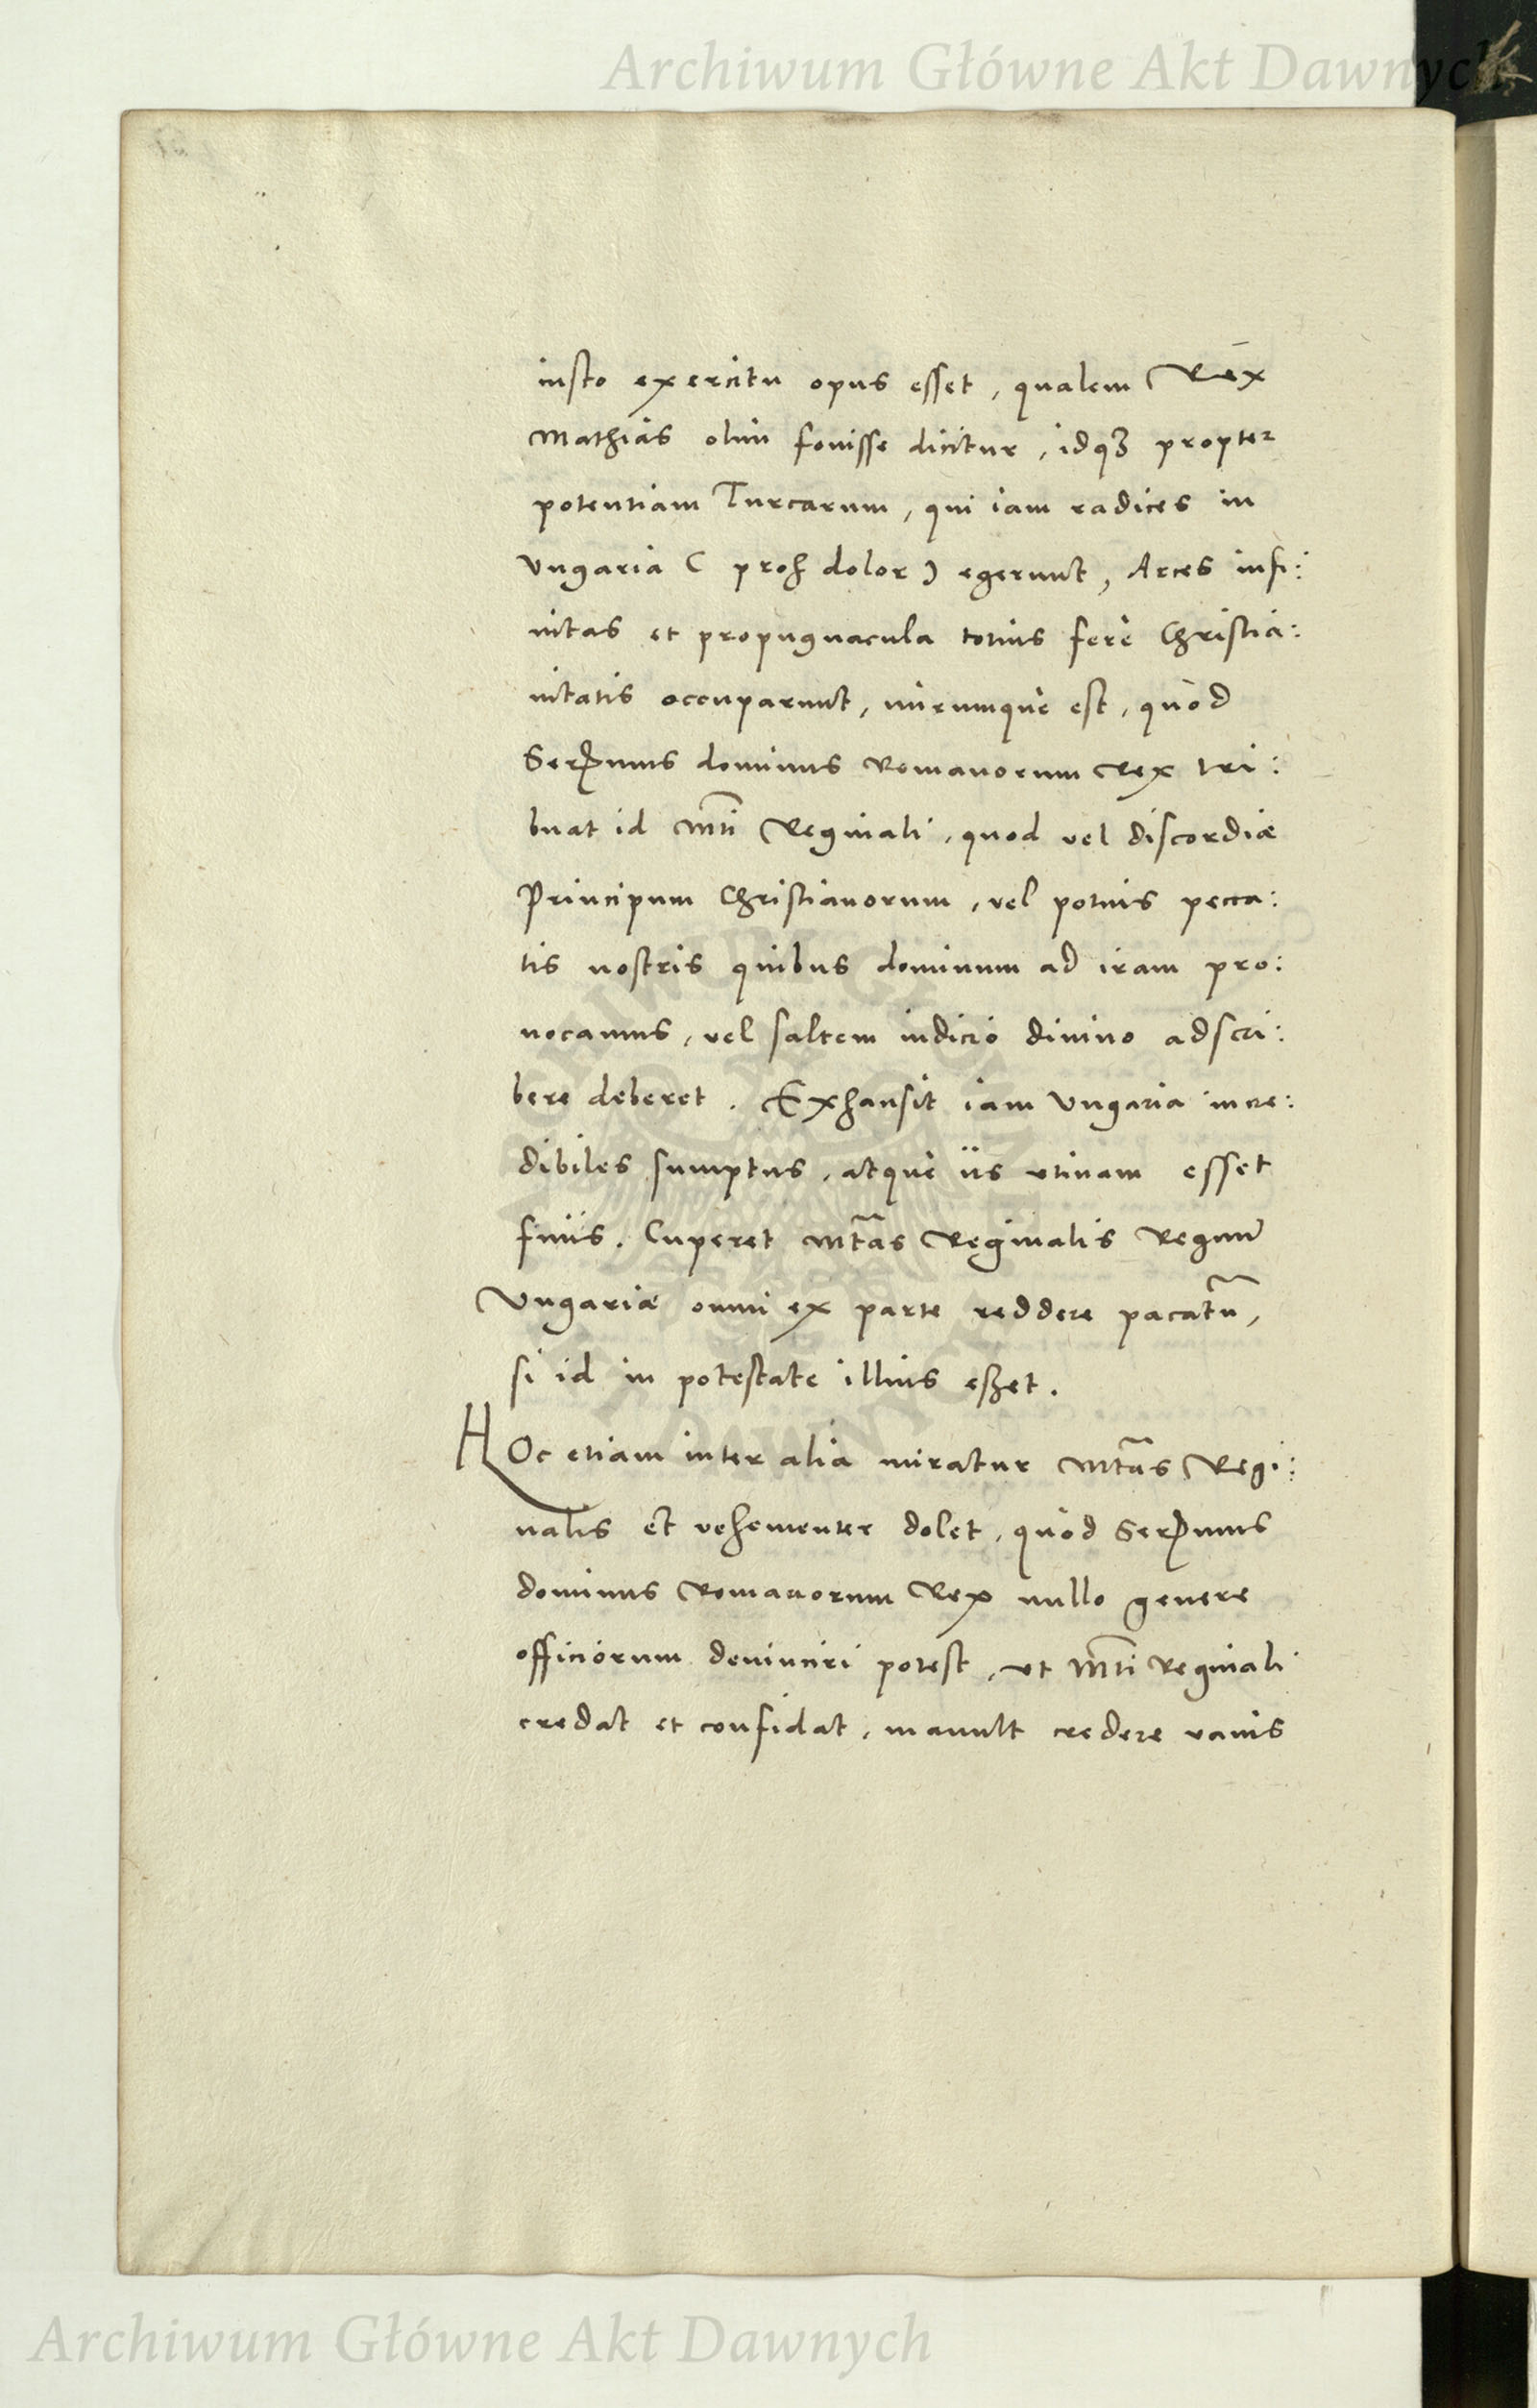 Archiwum Główne Akt Dawnych
iusto exercitu opus esset, qualem Rex
Mathias olim fouisse dicitur, idqꝫ propter
potentiam Turcarum, qui iam radices in
Vngaria ( proh dolor ) egerunt, Arces infi:
nitas et propugnacula totius ferè Christia:
nitatis occuparunt, mirumquè est, quòd
Serᵽnmus dominus Romanorum Rex tri:
buat id Mti Reginali, quod vel discordiæ
Principum Christianorum, vel potius pecca:
tis nostris quibus dominum ad iram pro:
uocamus, vel saltem iudicio diuino adscri:
bere deberet. Exhausit iam Vngaria incre:
dibiles sumptus, atquè iis vtinam esset
finis. Cuperet Mtas Reginalis Regnũ
Vngariæ omni ex parte reddere pacatũ,
si id in potestate illius eßet.
HOc etiam inter alia miratur Mtas Regi:
nalis et vehementer dolet, quòd Serᵽnmus
dominus Romanorum Rex nullo genere
officiorum deuinciri potest, vt Mti Reginali
credat et confidat, mauult credere vanis
Archiwum Główne Akt Dawnych